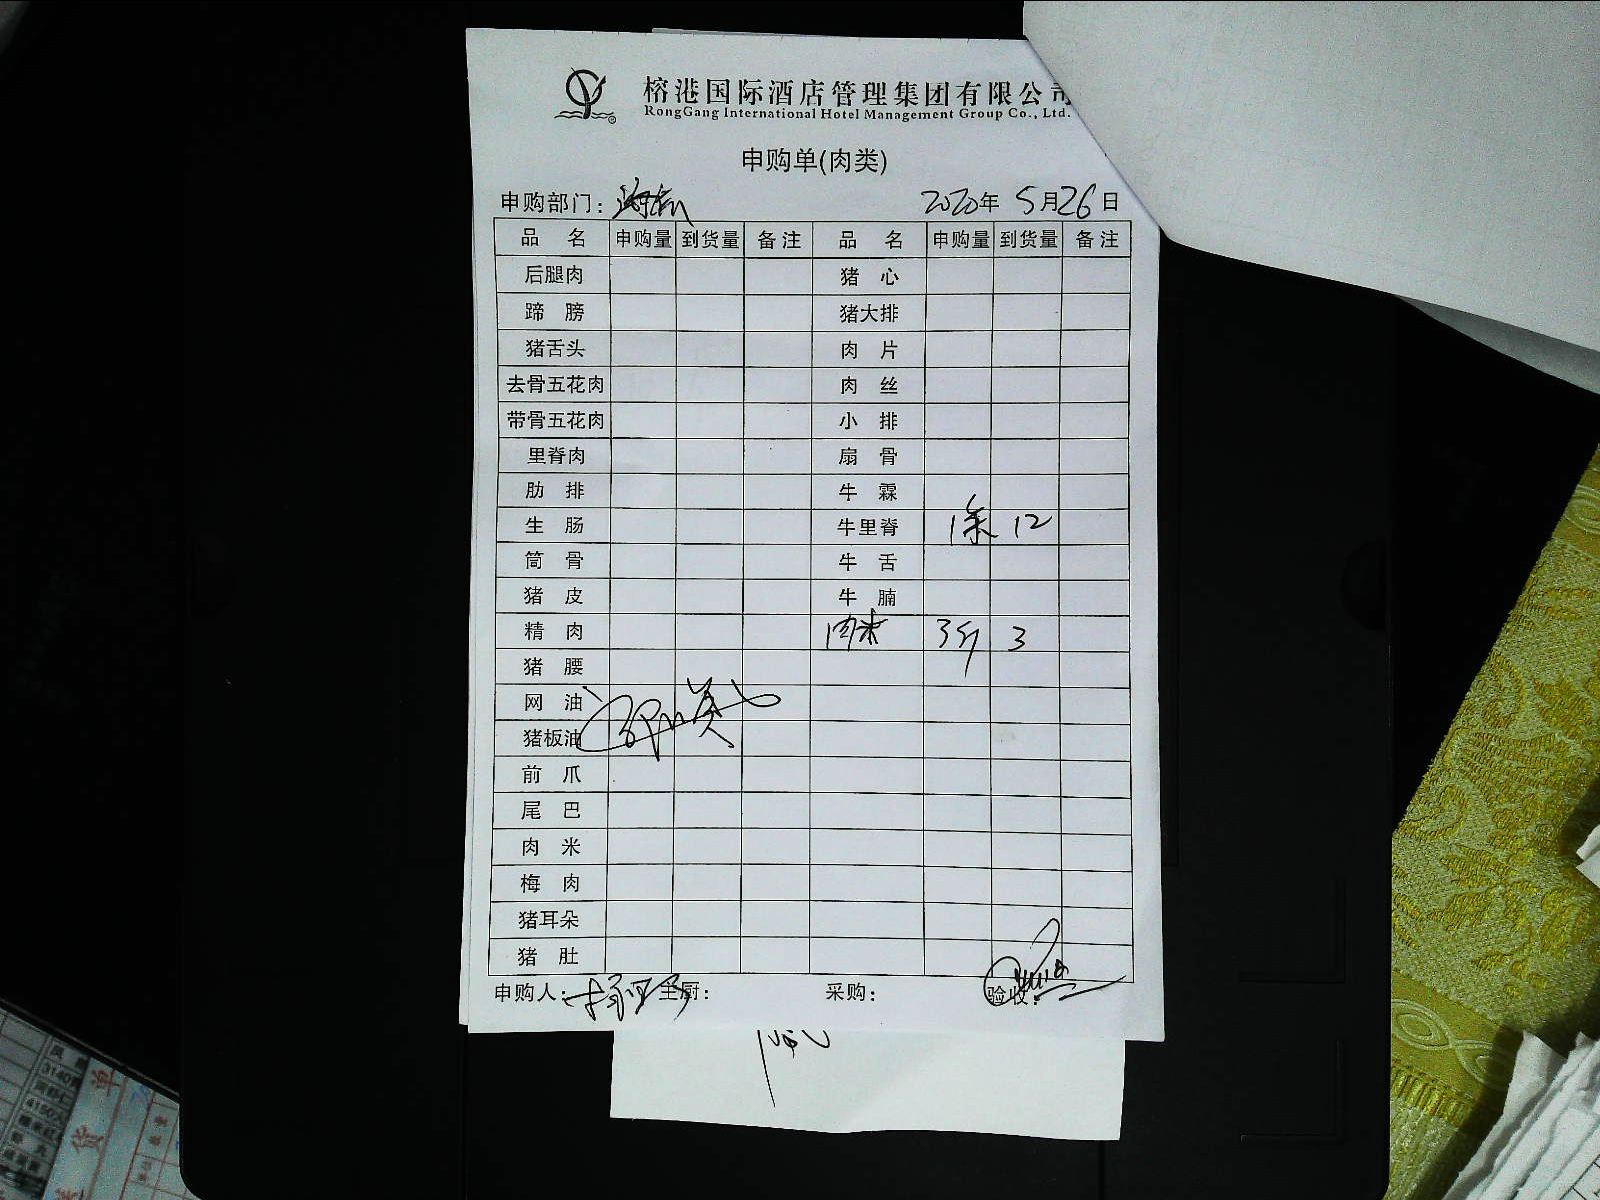 榕港国际酒店管理集团有限公司
RongGang International Hotel Management Group Co., Ltd.
申购单(肉类)
申购部门: 2020年 5月26日
品 名 申购量 到货量 备注 品 名 申购量 到货量 备注
后腿肉 猪 心
蹄 膀 猪大排
猪舌头 肉 片
去骨五花肉 肉 丝
带骨五花肉 小 排
里脊肉 扇 骨
肋 排 牛 霖
生 肠 牛里脊 1条 12
筒 骨 牛 舌
猪 皮 牛 腩
精 肉 肉末 3斤 3
猪 腰
网 油
猪板油
前 爪
尾 巴
肉 米
梅 肉
猪耳朵
猪 肚
申购人: 主厨: 采购: 验收: